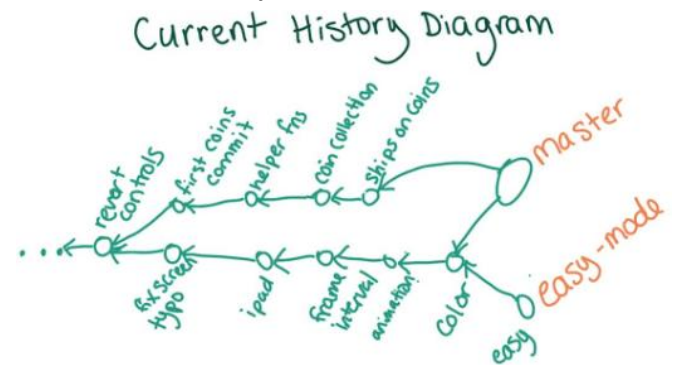 Current History Diagram
revert
controls
first coins
commit
helper fns
coin collection
ships on coins
master
...
fix screen
typo
ipad
frame
interval
animation
color
easy
easy-mode